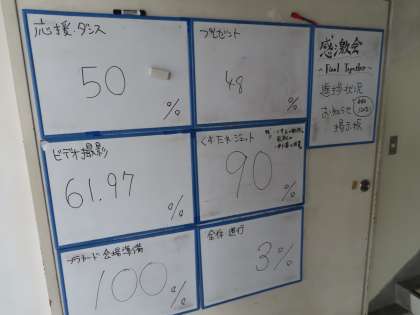 応援・ダンス
50
%
プレゼント
48
%
感激会
~Final Together~
進捗状況
お知らせ
掲示板
ビデオ撮影
61.97
%
90
%
プラカード 会場準備
100
%
全体進行
3%